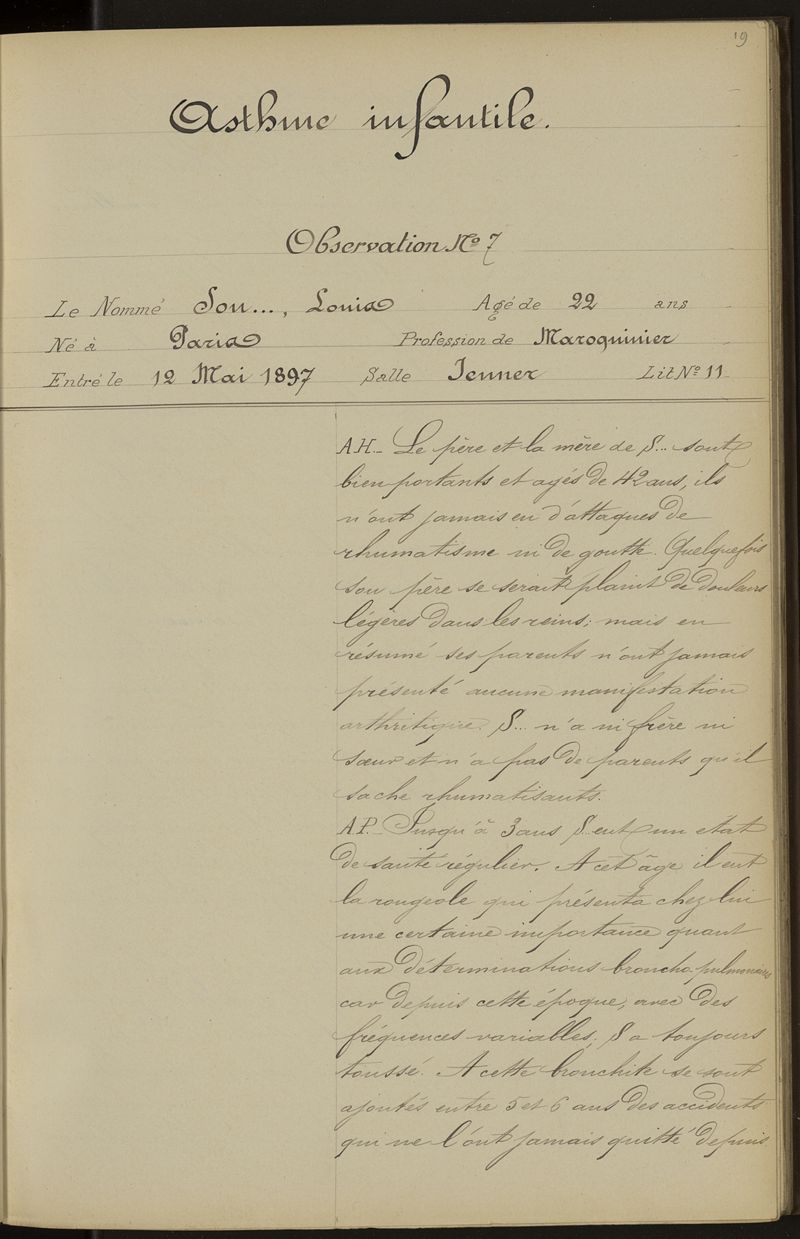 19
Asthme infantile.
Observation No 7
Le Nommé Sou..., Louis Agé de 22 ans
Né à Paris Profession de Maroquinier
Entré le 12 Mai 1897 Salle Jenner Lit No 11
A.H._ Le père et la mère de S... sont
bien portants et agés de 42 ans, ils
n'ont jamais eu d'attaques de
rhumatisme ni de goutte. Quelquefois
son père se serait plaint de douleurs
légères dans les reins; mais en
résumé ses parents n'ont jamais
présenté aucune manifestation
arthritique. S... n'a ni frère ni
sœur et n'a pas de parents qu'il
sache rhumatisants.
A.P._ Jusqu'à 3 ans S... eut un état
de santé régulier. A cet âge il eut
la rougeole qui présenta chez lui
une certaine importance quant
aux déterminations broncho pulmonaires
car depuis cette époque, avec des
fréquences variables, S a toujours
toussé. A cette bronchite se sont
ajoutés entre 5 et 6 ans des accidents
qui ne l'ont jamais quitté depuis